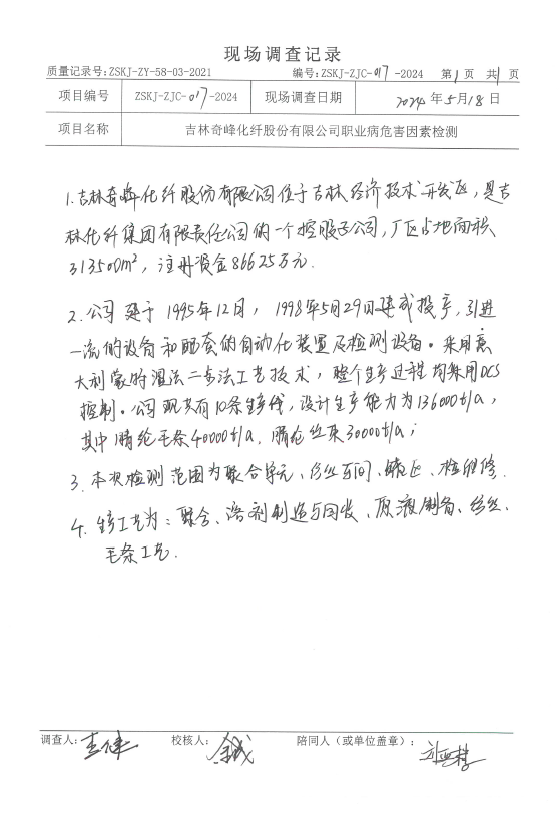 现场调查记录
质量记录号:ZSKJ-ZY-58-03-2021 编号:ZSKJ-ZJC-017-2024 第1页 共1页
项目编号 ZSKJ-ZJC-017-2024 现场调查日期 2024年5月18日
项目名称 吉林奇峰化纤股份有限公司职业病危害因素检测
1.吉林奇峰化纤股份有限公司位于吉林经济技术开发区,是吉
林化纤集团有限责任公司的一个控股子公司,厂区占地面积
313500m²,注册资金86625万元.
2.公司建于1995年12月,1998年5月29日建成投产,引进
一流的设备和配套的自动化装置及检测设备。采用意
大利蒙特湿法二步法工艺技术,整个生产过程均采用DCS
控制。公司现共有10条生产线,设计生产能力为136000t/a,
其中腈纶毛条40000t/a,腈纶丝束30000t/a;
3.本次检测范围为聚合单元、纺丝车间、罐区、检维修.
4.生产工艺为:聚合、溶剂制造与回收、原液制备、纺丝、
毛条工艺.
调查人: 校核人: 陪同人(或单位盖章):